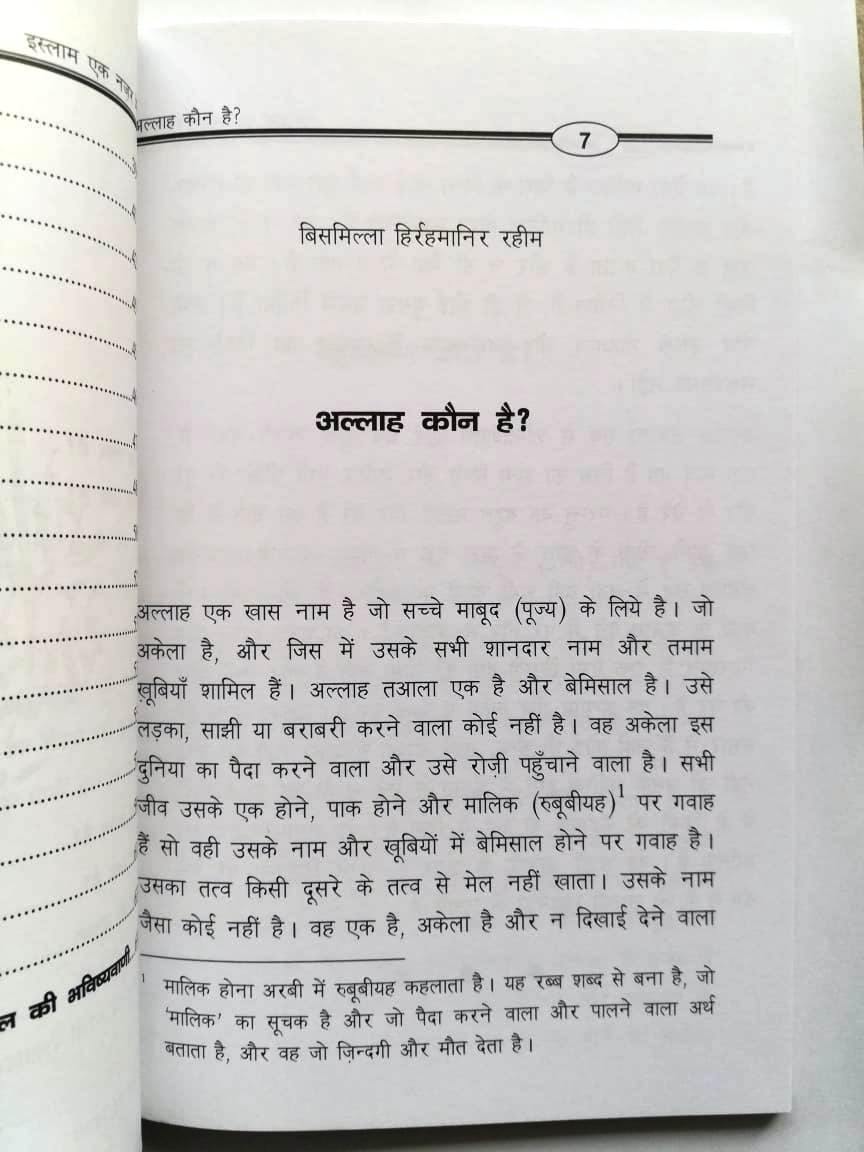 इस्लाम एक नज़र
ल की भविष्यवाणी
अल्लाह कौन है?
7
बिसमिल्ला हिर्रहमानिर रहीम
अल्लाह कौन है?
अल्लाह एक खास नाम है जो सच्चे माबूद (पूज्य) के लिये है। जो
अकेला है, और जिस में उसके सभी शानदार नाम और तमाम
ख़ूबियाँ शामिल हैं। अल्लाह तआला एक है और बेमिसाल है। उसे
लड़का, साझी या बराबरी करने वाला कोई नहीं है। वह अकेला इस
दुनिया का पैदा करने वाला और उसे रोज़ी पहुँचाने वाला है। सभी
जीव उसके एक होने, पाक होने और मालिक (रुबूबीयह)¹ पर गवाह
हैं सो वही उसके नाम और खूबियों में बेमिसाल होने पर गवाह है।
उसका तत्व किसी दूसरे के तत्व से मेल नहीं खाता। उसके नाम
जैसा कोई नहीं है। वह एक है, अकेला है और न दिखाई देने वाला
¹ मालिक होना अरबी में रुबूबीयह कहलाता है। यह रब्ब शब्द से बना है, जो
'मालिक' का सूचक है और जो पैदा करने वाला और पालने वाला अर्थ
बताता है, और वह जो ज़िन्दगी और मौत देता है।